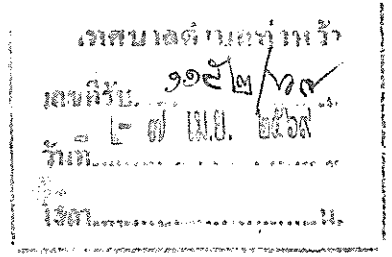 เทศบาลตำบลท่าหว้า
เลขที่รับ ๑๑๕๒/๖๙
วันที่ - ๗ เม.ย. ๒๕๖๙
เวลา น.